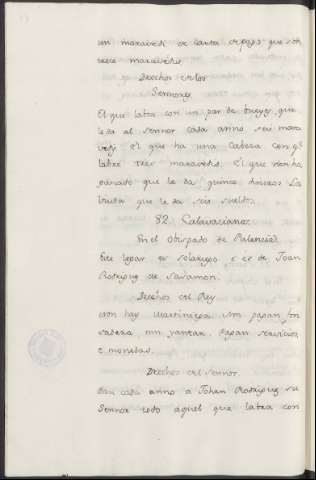 un maravedi de tanta de pago que son
trece maravedis
Derechos de los
Sennores
El que labra con un par de bueyes que
le da al sennor cada anno seis mara
vedis El que ha una cabeza con q.e
labre tres maravedis. El que non ha
ganado que le da quince dineros La
biuda que le da seis sueldos
82. Calavazanos
En el Obispado de Palencia
Este logar es solariego e es de Joan
Rodriguez de Sandoval
Derechos del Rey
Non hay Martiniega Nin pagan fon
sadera nin yantar. Pagan servicios
e monedas.
Derechos del Sennor.
Dan cada anno a Johan Rodriguez su
Sennor todo aquel que labra con